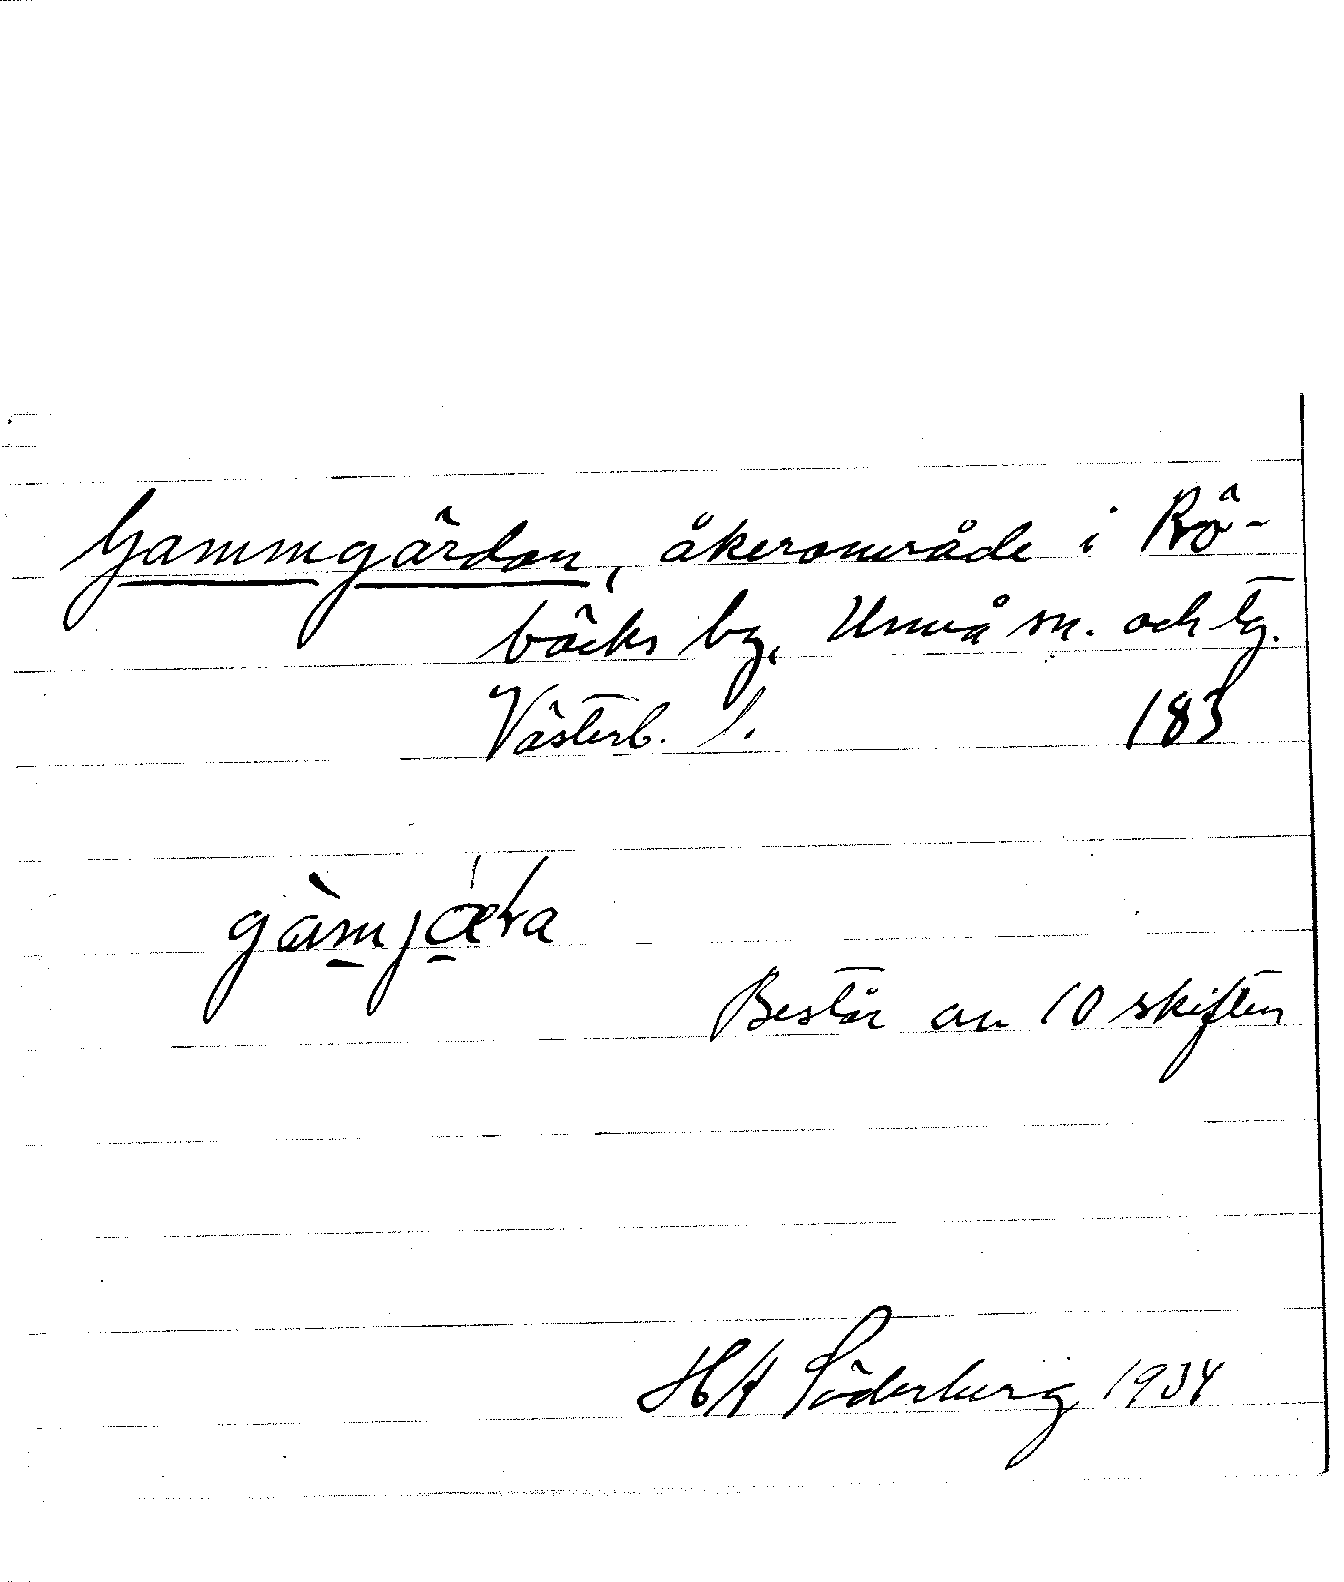 Gammgärdan, åkerområde i Rö-
bäcks by, Umeå sn. och tg.
Västerb. l. 183
Består av 10 skiften
HA Söderberg 1934